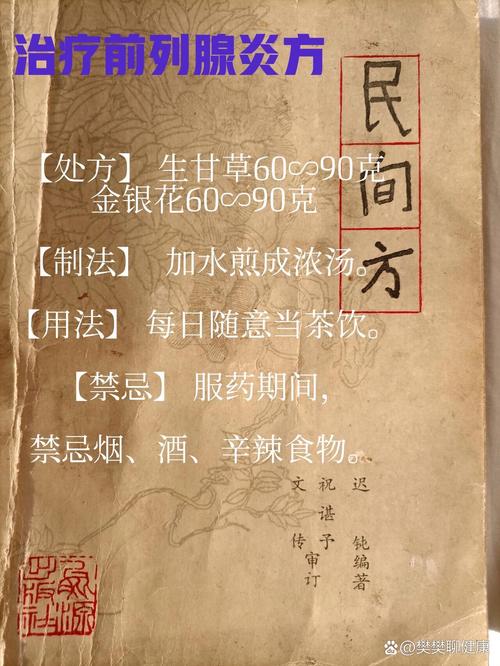 治疗前列腺炎方
民间方
【处方】 生甘草60∽90克
金银花60∽90克
【制法】 加水煎成浓汤。
【用法】 每日随意当茶饮。
【禁忌】 服药期间,
禁忌烟、酒、辛辣食物。
迟 钝编著
祝谌予审订
文 传
@樊樊聊健康